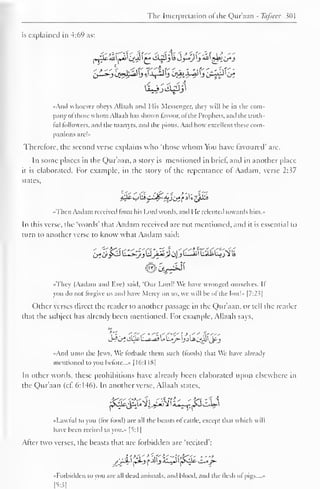 The Interpretation of the Qur'aan - Tafseer 301
is explained in 4:69 as:
وَمَن يُطِعِ اللَّهَ وَالرَّسُولَ فَأُولَٰئِكَ مَعَ الَّذِينَ أَنْعَمَ اللَّهُ عَلَيْهِم
مِّنَ النَّبِيِّينَ وَالصِّدِّيقِينَ وَالشُّهَدَاءِ وَالصَّالِحِينَ وَحَسُنَ
أُولَٰئِكَ رَفِيقًا
«And whoever obeys Allaah and His Messenger, they will be in the com-
pany of those whom Allaah has shown favour, of the Prophets, and the truth-
ful followers, and the martyrs, and the pious. And how excellent these com-
panions are!»
Therefore, the second verse explains who 'those whom You have favoured' are.
In some places in the Qur'aan, a story is mentioned in brief, and in another place
it is elaborated. For example, in the story of the repentance of Aadam, verse 2:37
states,
فَتَلَقَّىٰ آدَمُ مِن رَّبِّهِ كَلِمَاتٍ فَتَابَ عَلَيْهِ
«Then Aadam received from his Lord words, and He relented towards him.»
In this verse, the 'words' that Aadam received are not mentioned, and it is essential to
turn to another verse to know what Aadam said:
قَالَا رَبَّنَا ظَلَمْنَا أَنفُسَنَا وَإِن لَّمْ تَغْفِرْ لَنَا وَتَرْحَمْنَا لَنَكُونَنَّ مِنَ
الْخَاسِرِينَ ﴿٢٣﴾
«They (Aadam and Eve) said, 'Our Lord! We have wronged ourselves. If
you do not forgive us and have Mercy on us, we will be of the lost!» [7:23]
Other verses direct the reader to another passage in the Qur'aan, or tell the reader
that the subject has already been mentioned. For example, Allaah says,
وَعَلَى الَّذِينَ هَادُوا حَرَّمْنَا مَا قَصَصْنَا عَلَيْكَ مِن قَبْلُ
«And unto the Jews, We forbade them such (foods) that We have already
mentioned to you before...» [16:118]
In other words, these prohibitions have already been elaborated upon elsewhere in
the Qur'aan (cf. 6:146). In another verse, Allaah states,
أُحِلَّتْ لَكُم بَهِيمَةُ الْأَنْعَامِ إِلَّا مَا يُتْلَىٰ عَلَيْكُمْ
«Lawful to you (for food) are all the beasts of cattle, except that which will
have been recited to you.» [5:1]
After two verses, the beasts that are forbidden are 'recited':
حُرِّمَتْ عَلَيْكُمُ الْمَيْتَةُ وَالدَّمُ وَلَحْمُ الْخِنزِيرِ
«Forbidden to you are all dead animals, and blood, and the flesh of pigs....»
[5:3]